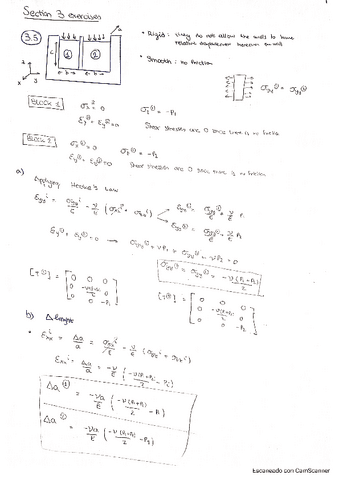 Section 3 exercises
3.5
1 2
a b b
z
x y
• Rigid: they do not allow the walls to have
relative displacement between them
• Smooth: no friction
σy① = σy②
Block 1
σx① = 0 σz① = -P₁
εy① + εy② = 0 Shear stresses are 0 since there is no friction
Block 2
σx② = 0 σz② = -P₂
εy① + εy② = 0 Shear stresses are 0 since there is no friction
a)
Applying Hooke's Law
εyⁱ = σyⁱ/E - ν/E (σxⁱ + σzⁱ)
εy① = σy①/E + ν/E P₁
εy② = σy②/E + ν/E P₂
εy① + εy② = 0 → σy① + νP₁ + σy② + νP₂ = 0
σy① = σy② = -ν(P₁+P₂)/2
[T①] = [0 0 0; 0 -ν(P₁+P₂)/2 0; 0 0 -P₁]
[T②] = [0 0 0; 0 -ν(P₁+P₂)/2 0; 0 0 -P₂]
b) Δ lengths
• εxⁱ = Δa/a = σxⁱ/E - ν/E (σyⁱ + σzⁱ)
εxⁱ = Δa/a = -ν/E (-ν(P₁+P₂)/2 - Pᵢ)
Δa① = -νa/E (-ν(P₁+P₂)/2 - P₁)
Δa② = -νa/E (-ν(P₁+P₂)/2 - P₂)
Escaneado con CamScanner